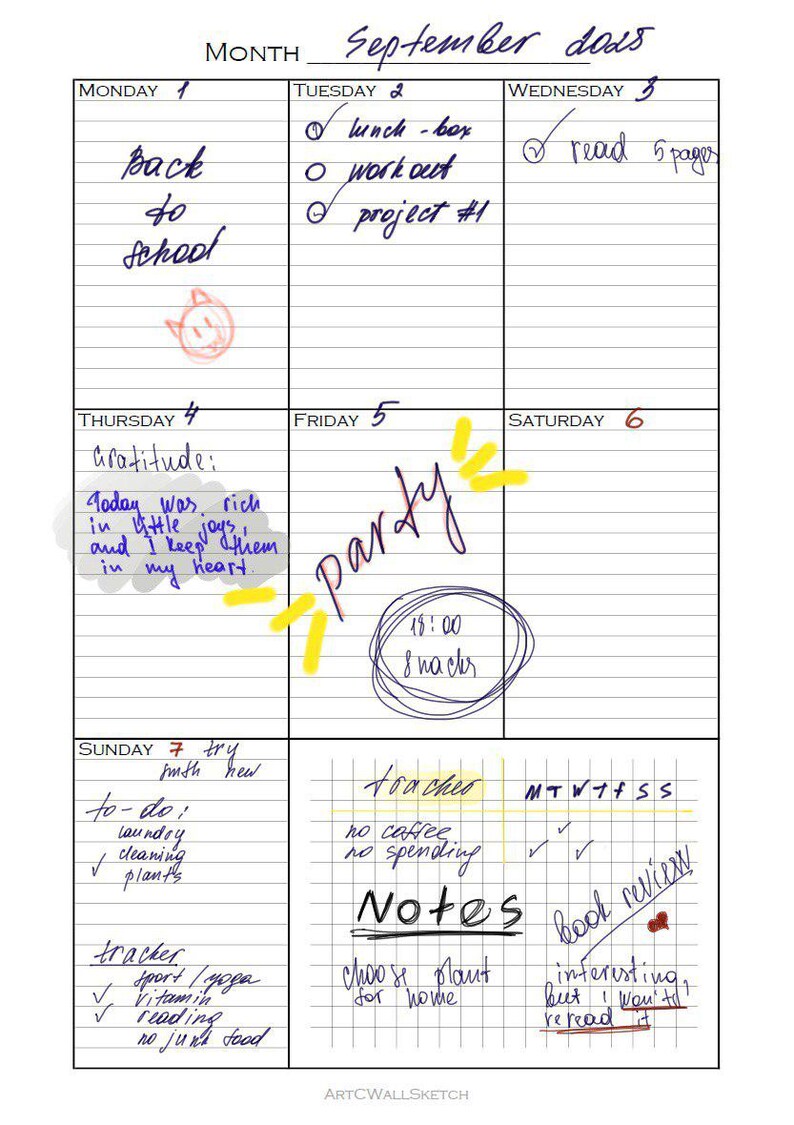 Month September 2025
Monday 1
Back
to
school
Tuesday 2
lunch-box
workout
project #1
Wednesday 3
read 5 pages
Thursday 4
Gratitude:
Today was rich
in little joys,
and I keep them
in my heart.
Friday 5
party
18:00
Snacks
Saturday 6
Sunday 7 try
smth new
to-do:
laundry
cleaning
plants
tracker
sport/yoga
vitamin
reading
no junk food
tracker M T W T F S S
no coffee
no spending
Notes
choose plant
for home
book review
interesting,
but I won't
reread it
ArtCWallSketch